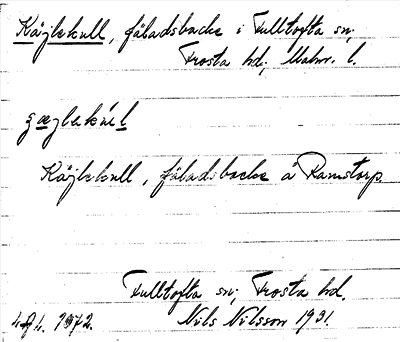 Käjlekull, fäladsbacke i Fulltofta sn;
Frosta hd; Malm. l.
gæjlekúl
Käjlekull, fäladsbacke å Ramstorp.
Fulltofta sn; Frosta hd.
Nils Nilsson 1931.
1972.